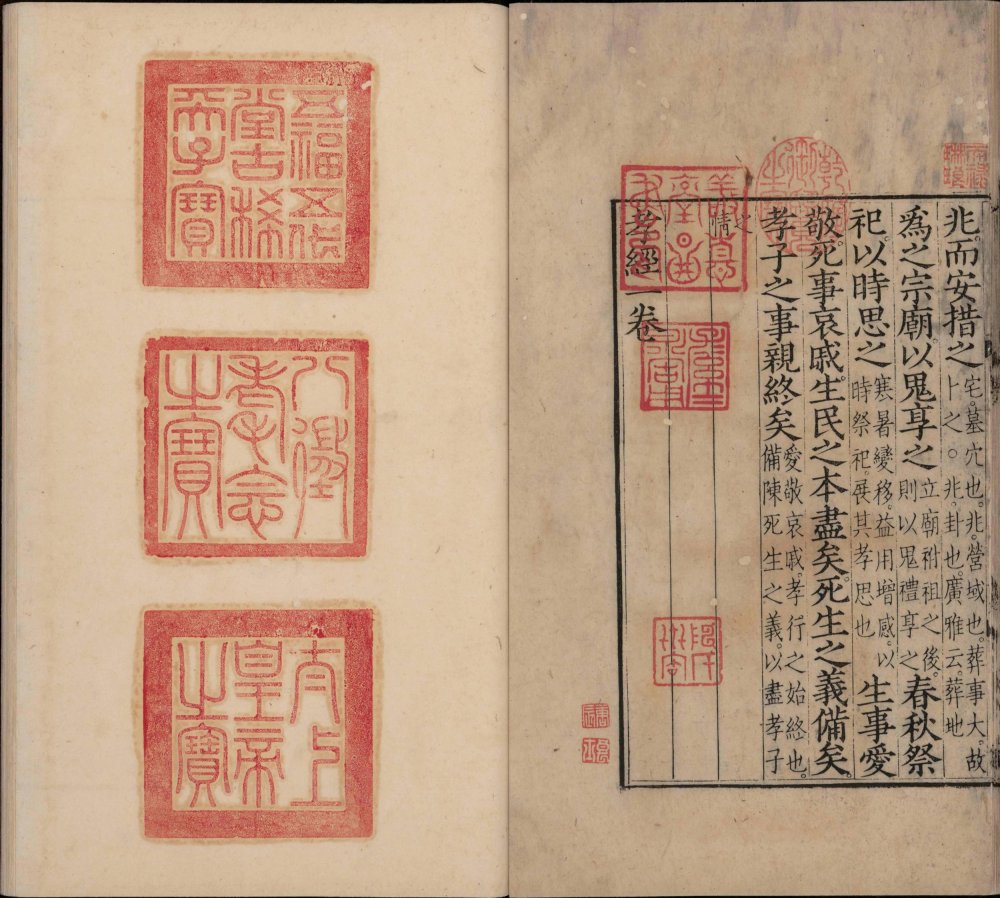 兆。而安措之
宅。墓穴也。兆。營域也。葬事大。故
卜之。○兆。卦也。廣雅云。葬地
爲之宗廟。以鬼享之
立廟祔祖之後。
則以鬼禮享之
春秋祭
祀。以時思之
寒暑變移。益用增感。以
時祭祀。展其孝思也
生事愛
敬。死事哀戚。生民之本盡矣。死生之義備矣。
孝子之事親終矣
愛敬哀戚。孝行之始終也。
備陳死生之義。以盡孝子
之
情
孝經一卷
乾隆御覽之寶
天祿琳琅
五福五代
堂古稀
天子寶
八徵
耄念
之寶
太上
皇帝
之寶